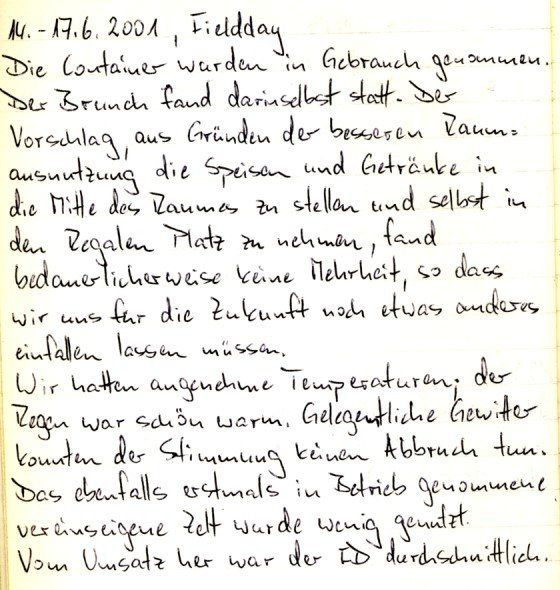 14.-17.6.2001, Fieldday
Die Container wurden in Gebrauch genommen.
Der Brunch fand darinselbst statt. Der
Vorschlag, aus Gründen der besseren Raum=
ausnutzung die Speisen und Getränke in
die Mitte des Raumes zu stellen und selbst in
den Regalen Platz zu nehmen, fand
bedauerlicherweise keine Mehrheit, so dass
wir uns für die Zukunft noch etwas anderes
einfallen lassen müssen.
Wir hatten angenehme Temperaturen; der
Regen war schön warm. Gelegentliche Gewitter
konnten der Stimmung keinen Abbruch tun.
Das ebenfalls erstmals in Betrieb genommene
vereinseigene Zelt wurde wenig genutzt.
Vom Umsatz her war der FD durchschnittlich.